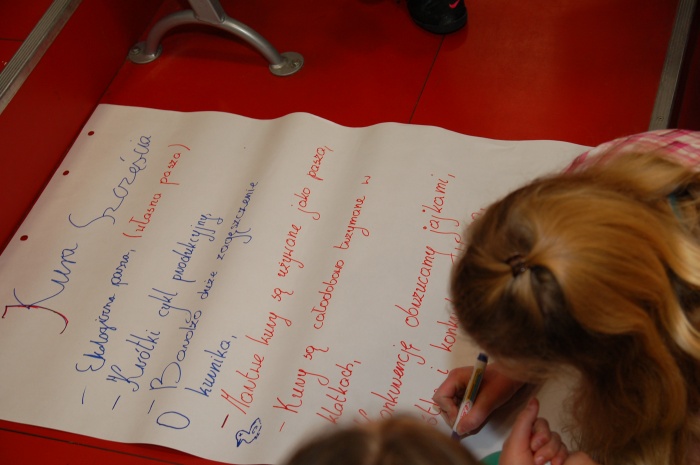 Kura Szczęścia
- Ekologiczna pasza. (własna pasza)
- Krótki cykl produkcyjny,
- Bardzo duże zagęszczenie
O kurnika,
- Martwe kury są używane jako pasza,
- Kury są całodobowo trzymane w
klatkach,
konkurencję obrzucamy jajkami,
i